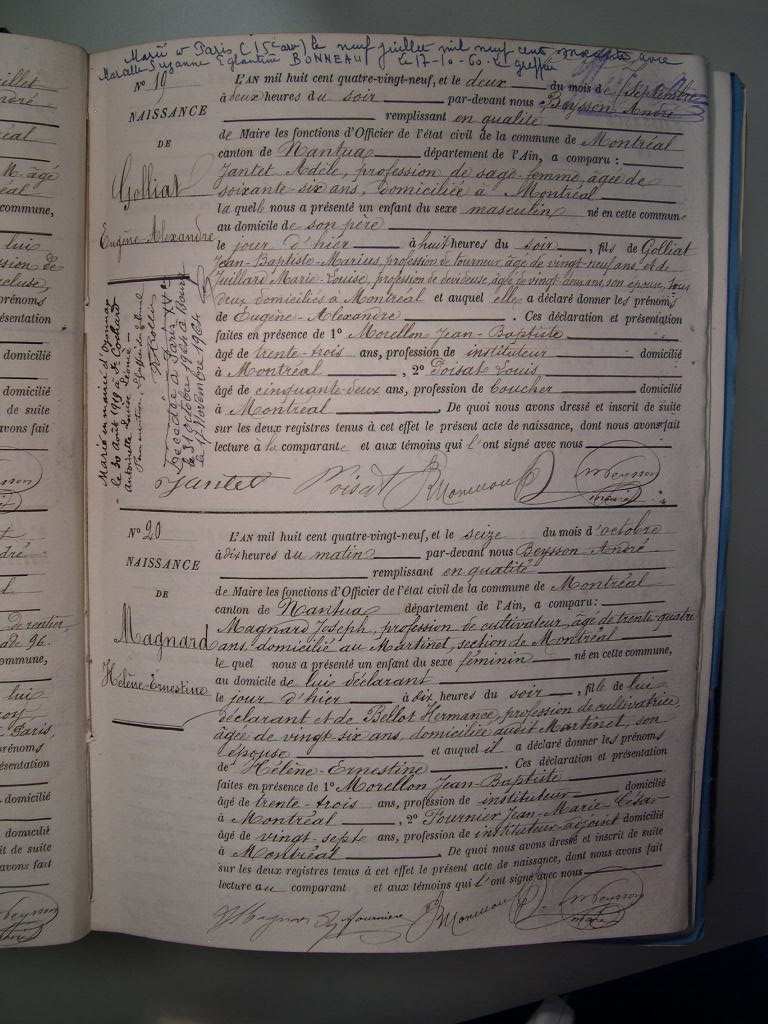 Marié à Paris (15e arr) le neuf juillet mil neuf cent soixante avec
Marcelle Suzanne Eglantine BONNEAU le 17-10-60. Le greffier
No 19
NAISSANCE
DE
Golliat
Eugène Alexandre
L'AN mil huit cent quatre-vingt-neuf, et le deux du mois de Septembre
à deux heures du soir par-devant nous Beysson André
remplissant en qualité
de Maire les fonctions d'Officier de l'état civil de la commune de Montréal
canton de Nantua département de l'Ain, a comparu :
Jantet Adèle, profession de sage-femme, âgée de
soixante-six ans, domiciliée à Montréal
laquelle nous a présenté un enfant du sexe masculin né en cette commune
au domicile de son père
le jour d'hier à huit heures du soir, fils de Golliat
Jean-Baptiste-Marius, profession de tourneur, âgé de vingt-neuf ans et de
Juillard Marie-Louise, profession de dévideuse, âgée de vingt ans, son épouse, tous
deux domiciliés à Montréal et auquel elle a déclaré donner les prénoms
de Eugène-Alexandre. Ces déclaration et présentation
faites en présence de 1o Morellon Jean-Baptiste
âgé de trente-trois ans, profession de instituteur domicilié
à Montréal, 2o Poisat Louis
âgé de cinquante-deux ans, profession de boucher domicilié
à Montréal. De quoi nous avons dressé et inscrit de suite
sur les deux registres tenus à cet effet le présent acte de naissance, dont nous avons fait
lecture à la comparante et aux témoins qui l'ont signé avec nous
Jantet Poisat Morellon Beysson
Marié en mairie d'Oyonnax
le 30 août 1919 à
Antoinette Louise Denise
Décédé à Paris XVe
le 31 octobre 1964
le 17 Novembre 1964
No 20
NAISSANCE
DE
Magnard
Hélène-Ernestine
L'AN mil huit cent quatre-vingt-neuf, et le seize du mois d'octobre
à dix heures du matin par-devant nous Beysson André
remplissant en qualité
de Maire les fonctions d'Officier de l'état civil de la commune de Montréal
canton de Nantua département de l'Ain, a comparu :
Magnard Joseph, profession de cultivateur, âgé de trente-quatre
ans, domicilié au Martinet, section de Montréal
lequel nous a présenté un enfant du sexe féminin né en cette commune,
au domicile de lui déclarant
le jour d'hier à dix heures du soir, fille de lui
déclarant et de Bellot Hermance, profession de cultivatrice,
âgée de vingt-six ans, domiciliée audit Martinet, son
épouse et auquel il a déclaré donner les prénoms
de Hélène-Ernestine. Ces déclaration et présentation
faites en présence de 1o Morellon Jean-Baptiste
âgé de trente-trois ans, profession de instituteur domicilié
à Montréal, 2o Fournier Jean-Marie-César
âgé de vingt-sept ans, profession de instituteur-adjoint domicilié
à Montréal. De quoi nous avons dressé et inscrit de suite
sur les deux registres tenus à cet effet le présent acte de naissance, dont nous avons fait
lecture au comparant et aux témoins qui l'ont signé avec nous
Magnard Fournier Morellon Beysson